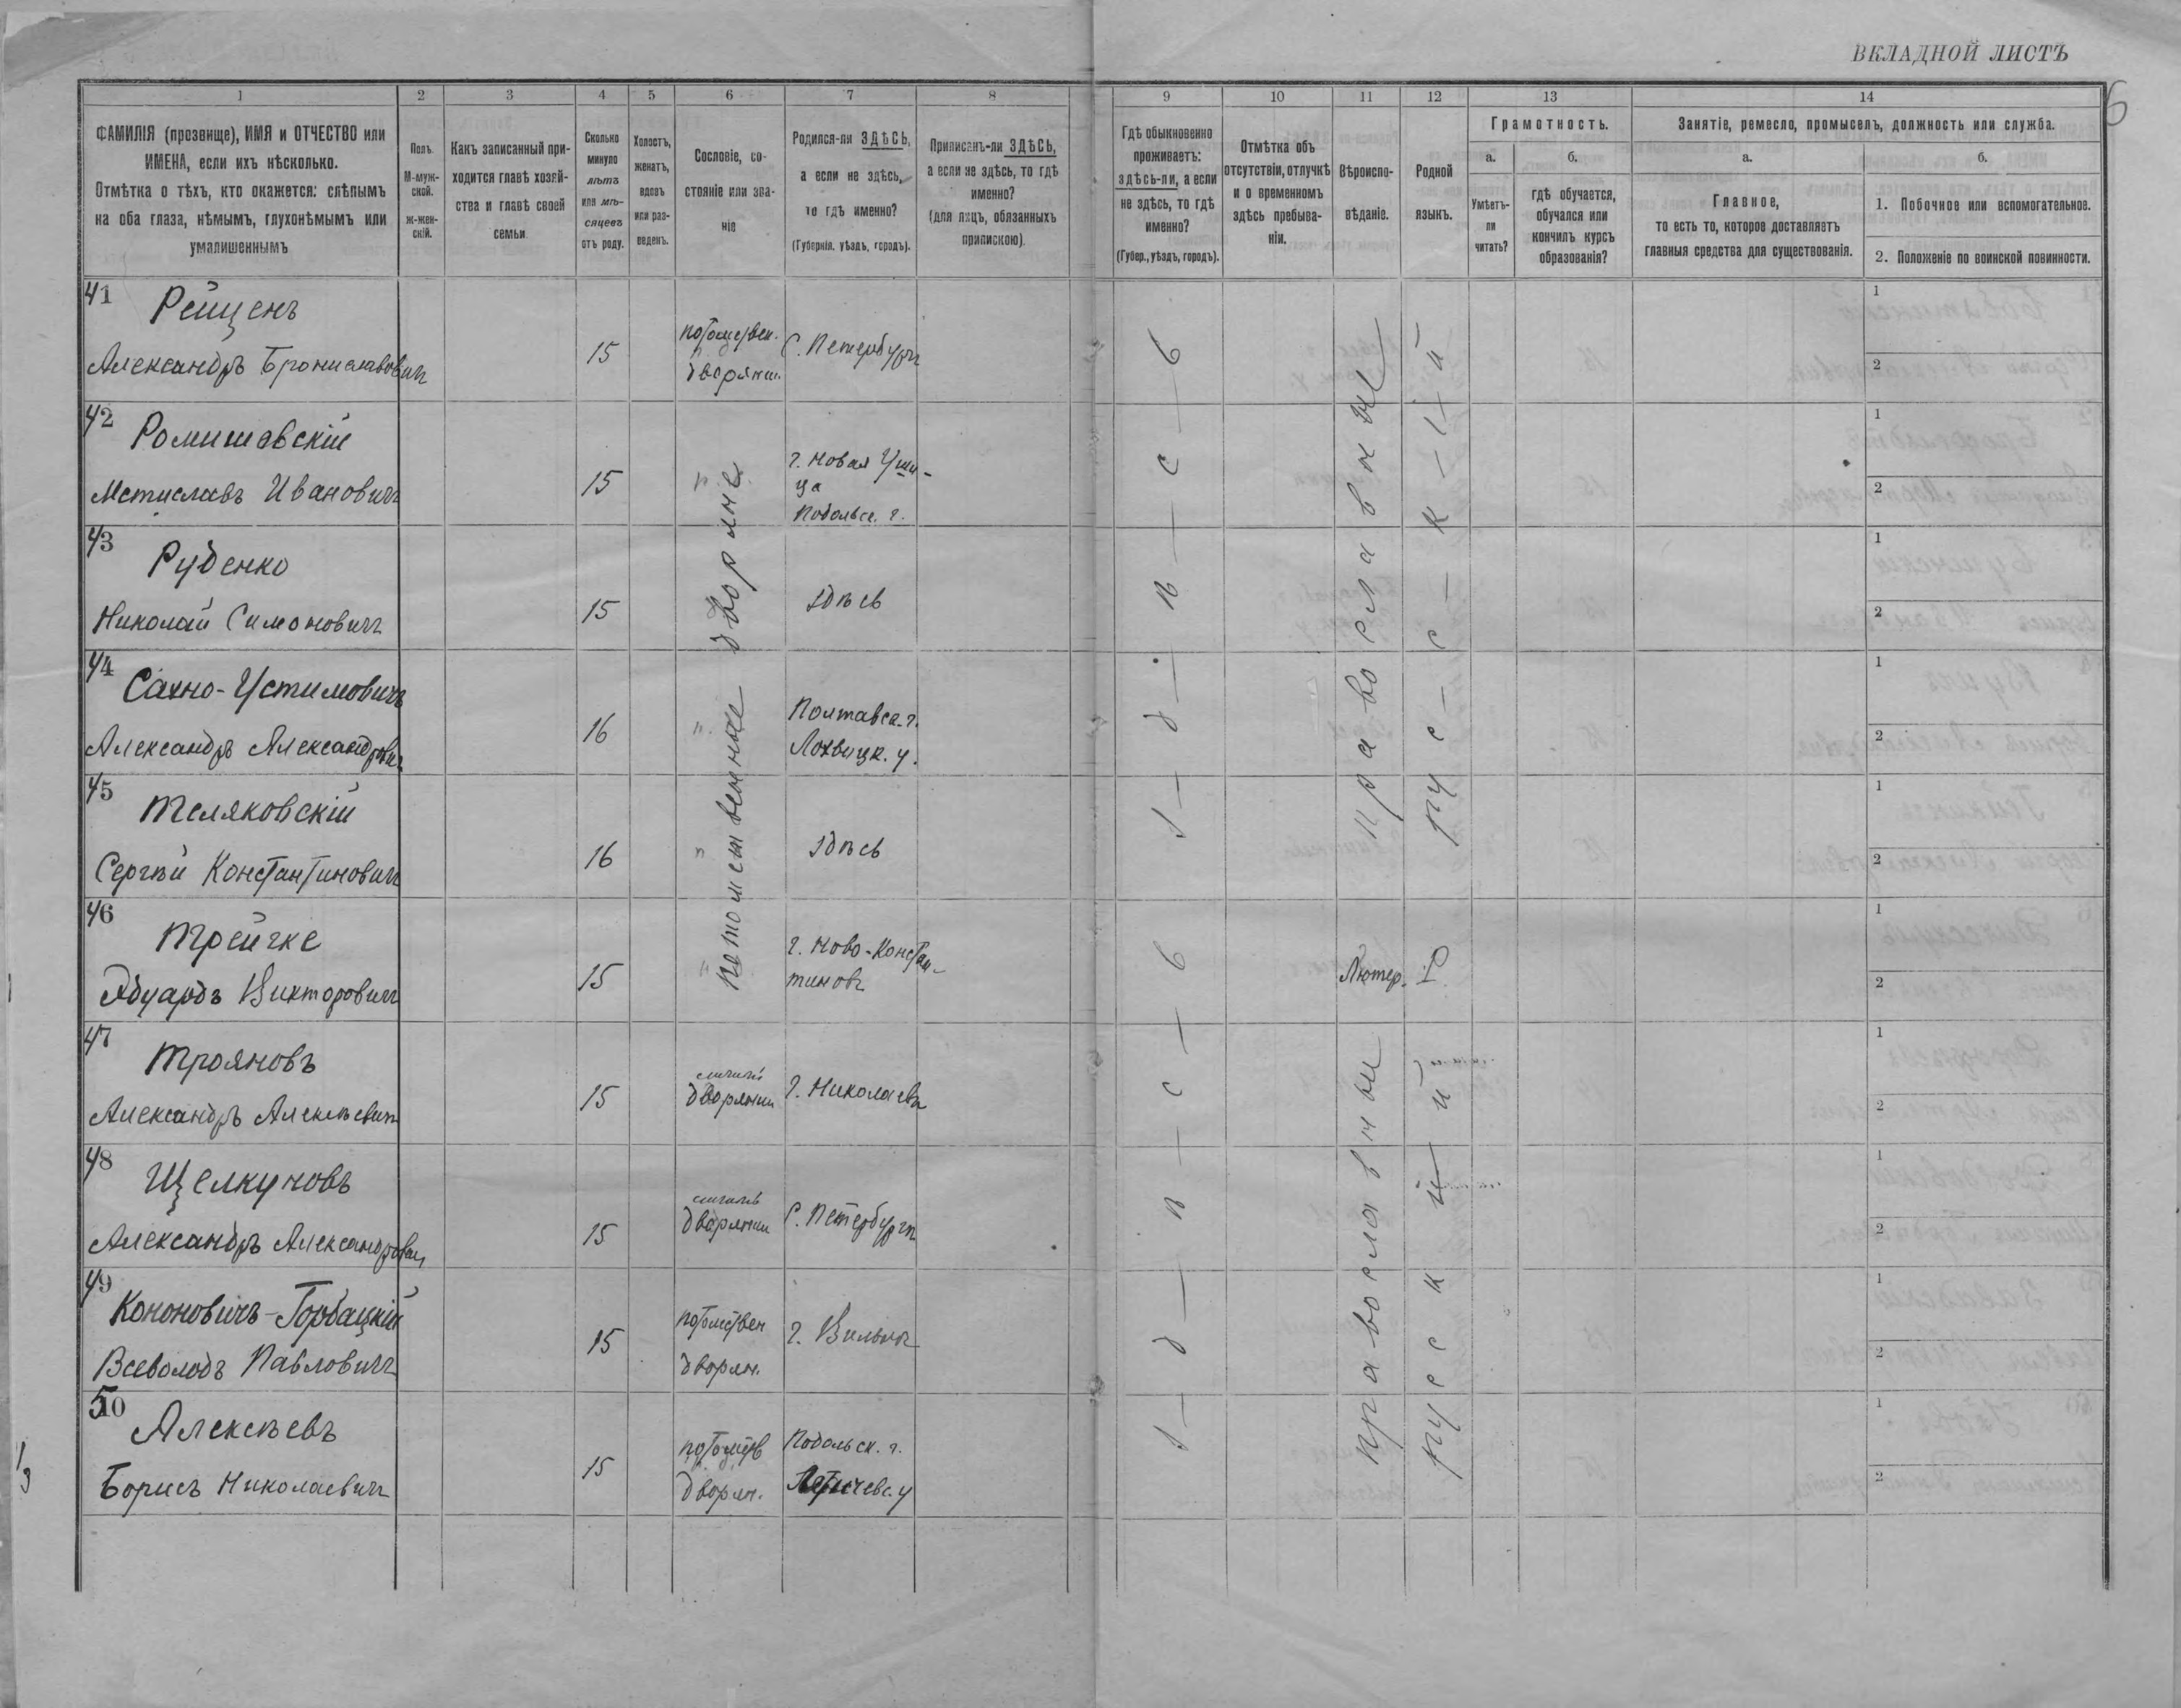 ВКЛАДНОЙ ЛИСТЪ
6
1 2 3 4 5 6 7 8 9 10 11 12 13 14
ФАМИЛІЯ (прозвище), ИМЯ и ОТЧЕСТВО или
ИМЕНА, если ихъ нѣсколько.
Отмѣтка о тѣхъ, кто окажется: слѣпымъ
на оба глаза, нѣмымъ, глухонѣмымъ или
умалишеннымъ
Полъ.
М-муж-
ской.
ж-жен-
скій.
Какъ записанный при-
ходится главѣ хозяй-
ства и главѣ своей
семьи
Сколько
минуло
лѣтъ
или мѣ-
сяцевъ
отъ роду.
Холостъ,
женатъ,
вдовъ
или раз-
веденъ.
Сословіе, со-
стояніе или зва-
ніе
Родился-ли ЗДѢСЬ,
а если не здѣсь,
то гдѣ именно?
(Губернія, уѣздъ, городъ).
Приписанъ-ли ЗДѢСЬ,
а если не здѣсь, то гдѣ
именно?
(для лицъ, обязанныхъ
припискою).
Гдѣ обыкновенно
проживаетъ:
здѣсь-ли, а если
не здѣсь, то гдѣ
именно?
(Губер., уѣздъ, городъ).
Отмѣтка объ
отсутствіи, отлучкѣ
и о временномъ
здѣсь пребыва-
ніи.
Вѣроиспо-
вѣданіе.
Родной
языкъ.
Грамотность.
а.
Умѣетъ-
ли
читать?
б.
гдѣ обучается,
обучался или
кончилъ курсъ
образованія?
Занятіе, ремесло, промыселъ, должность или служба.
а.
Главное,
то есть то, которое доставляетъ
главныя средства для существованія.
б.
1. Побочное или вспомогательное.
2. Положеніе по воинской повинности.
41
Рейценъ
Александръ Брониславович
15
потомствен.
дворянин.
С. Петербургъ
1
2
42
Ромишевскій
Мстиславъ Иванович
15
г. Новая Уши-
ца
Подольск. г.
1
2
43
Руденко
Николай Симонович
15
здѣсь
1
2
44
Сахно-Устимовичъ
Александръ Александрович
16
Полтавск. г.
Лохвицк. у.
1
2
45
Теляковскій
Сергѣй Константинович
16
здѣсь
1
2
потомственные дворяне
з-д-ѣ-с-ь
православные
рус-с-к-і-й
46
Трейчке
Эдуардъ Викторович
15
г. Ново-Констан-
тиновъ
Лютер.
1
2
47
Трояновъ
Александръ Алексѣевич
15
личный
дворянин
г. Николаевъ
1
2
48
Щелкуновъ
Александръ Александрович
15
дворянин
С. Петербургъ
1
2
49
Кононовичъ-Горбацкій
Всеволодъ Павлович
15
потомствен
дворян.
г. Вильна
1
2
50
Алексѣевъ
Борисъ Николаевич
15
потомств
дворян.
Подольск. г.
Летичевс. у
1
2
з-д-ѣ-с-ь
православные
русскій